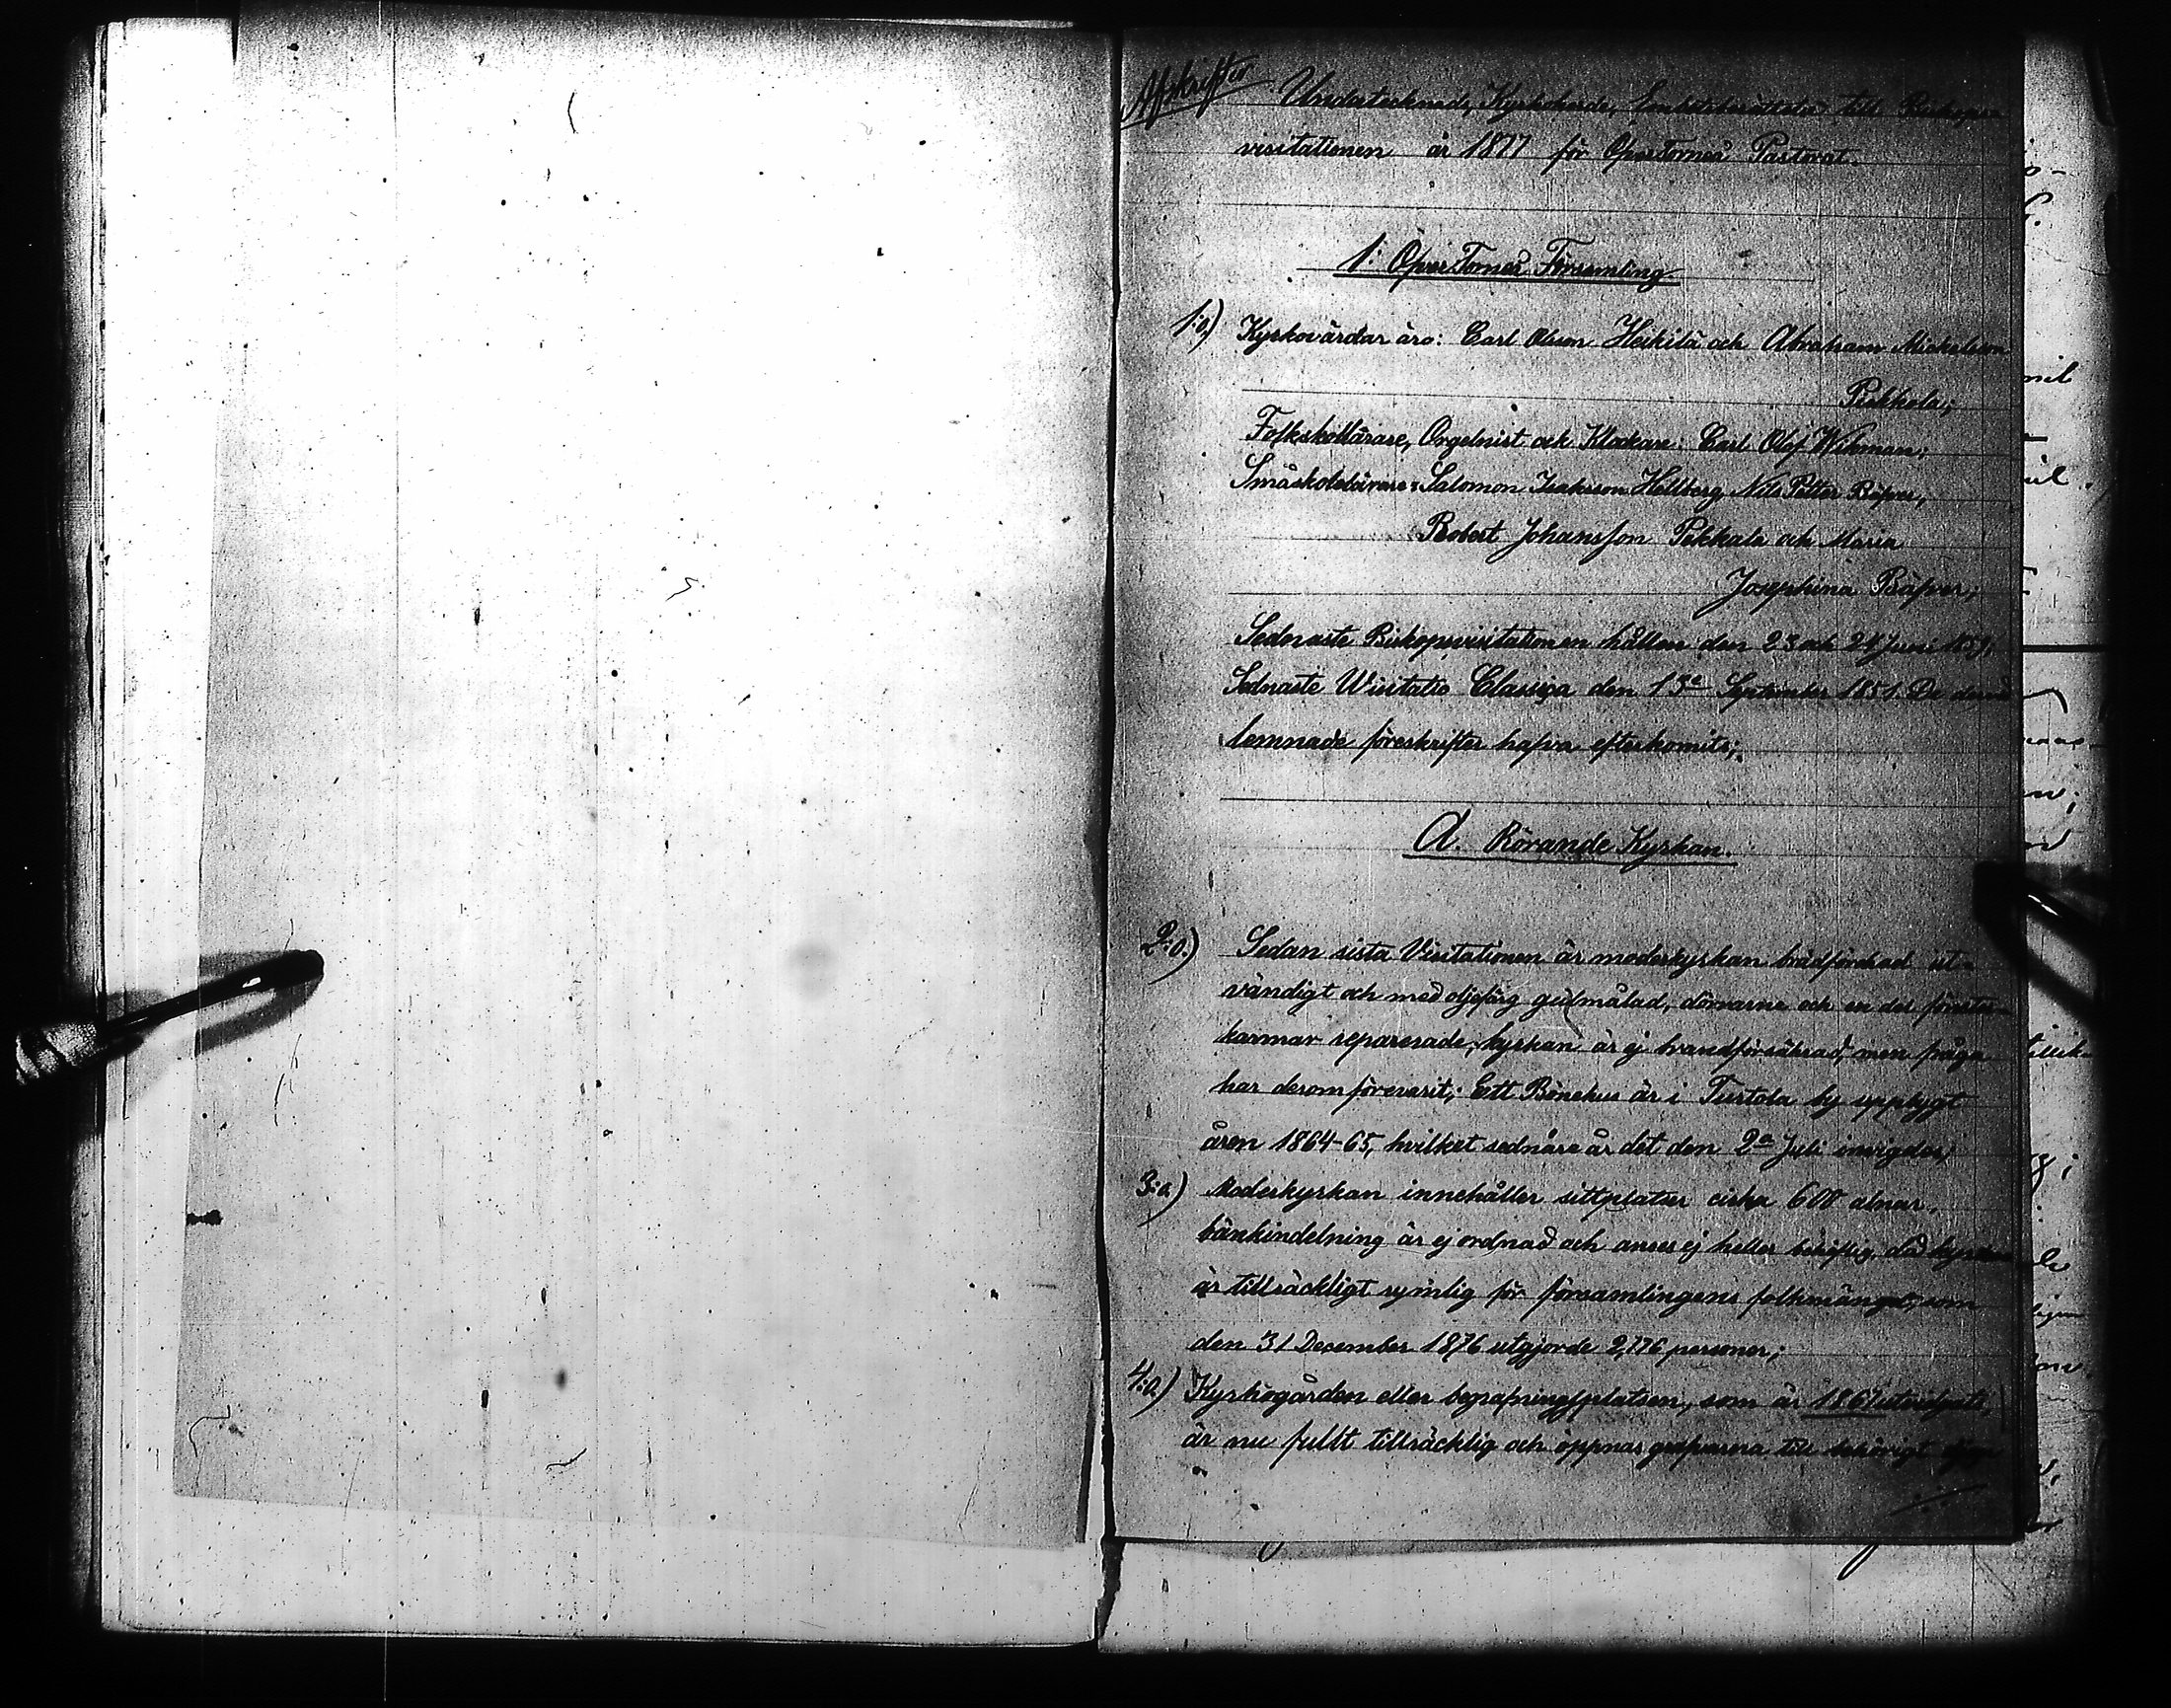 Afskrifter
Undertecknads, Kyrkoherde, Embetsberättelse till Biskops-
visitationen år 1877 för ÖfverTorneå Pastorat.
1: ÖfverTorneå Församling.
1:o) Kyrkovärdar äro: Carl Olsson Heikilä och Abraham Mickelsson
Pekkola;
Folkskollärare, Orgelnist och Klockare: Carl Olof Wihman;
Småskolelärare: Salomon Isaksson Hellberg Nils Petter Räfver,
Robert Johansson Pekkala och Maria
Josephina Räfver;
Sednaste Biskopsvisitationen hållen den 23 och 24 Juni
Sednaste Visitatio Classica den 13e September 1851. De
lemnade föreskrifter hafva efterkomits;
A. Rörande Kyrkan.
2:o.) Sedan sista Visitationen är moderkyrkan brädfordrad ut-
vändigt och med oljefärg gulmålad, dörrarne och en del fönster-
karmar reparerade; kyrkan är ej brandförsäkrad, men fråga
har derom förevarit; Ett Bönehus är i Turtola by uppbygt
åren 1864-65, hvilket sednare år det den 2a Juli invigdes;
3:o) Moderkyrkan innehåller sittplatser cirka 600 alnar,
bänkindelning är ej ordnad och anses ej heller behöflig, då kyrkan
är tillräckligt rymlig för församlingens folkmängd, som
den 31 December 1876 utgjorde 2,776 personer;
4:o) Kyrkogården eller begrafningsplatsen, som år 1867 utvidgats,
är nu fullt tillräcklig och öppnas grafvarna till behörigt djup